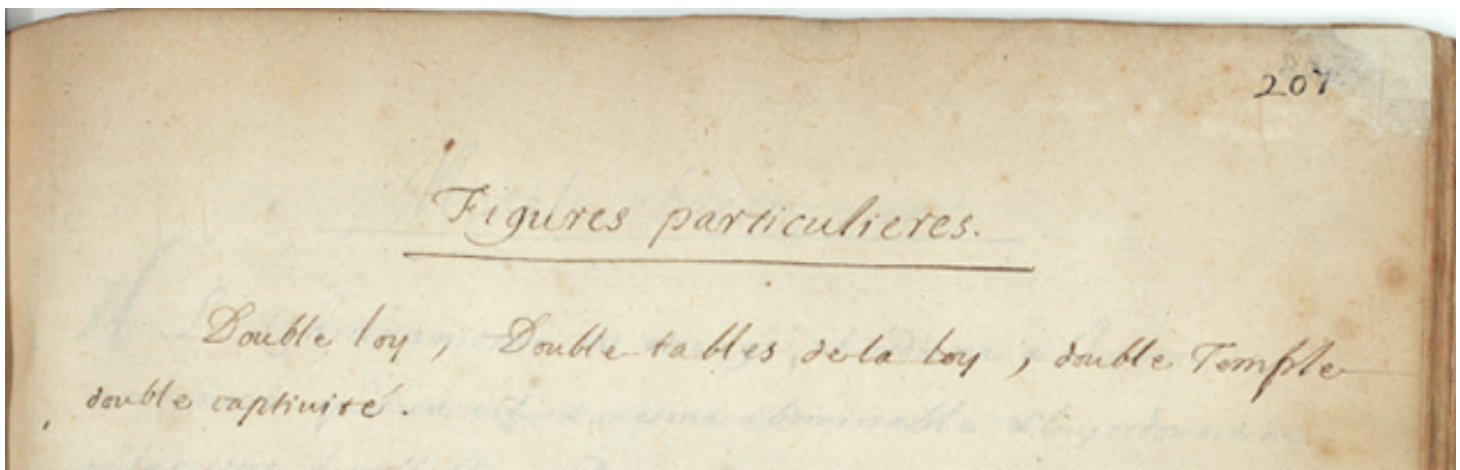 207
Figures particulieres.
Double loy, Double tables de la loy, double Temple
double captiuité.